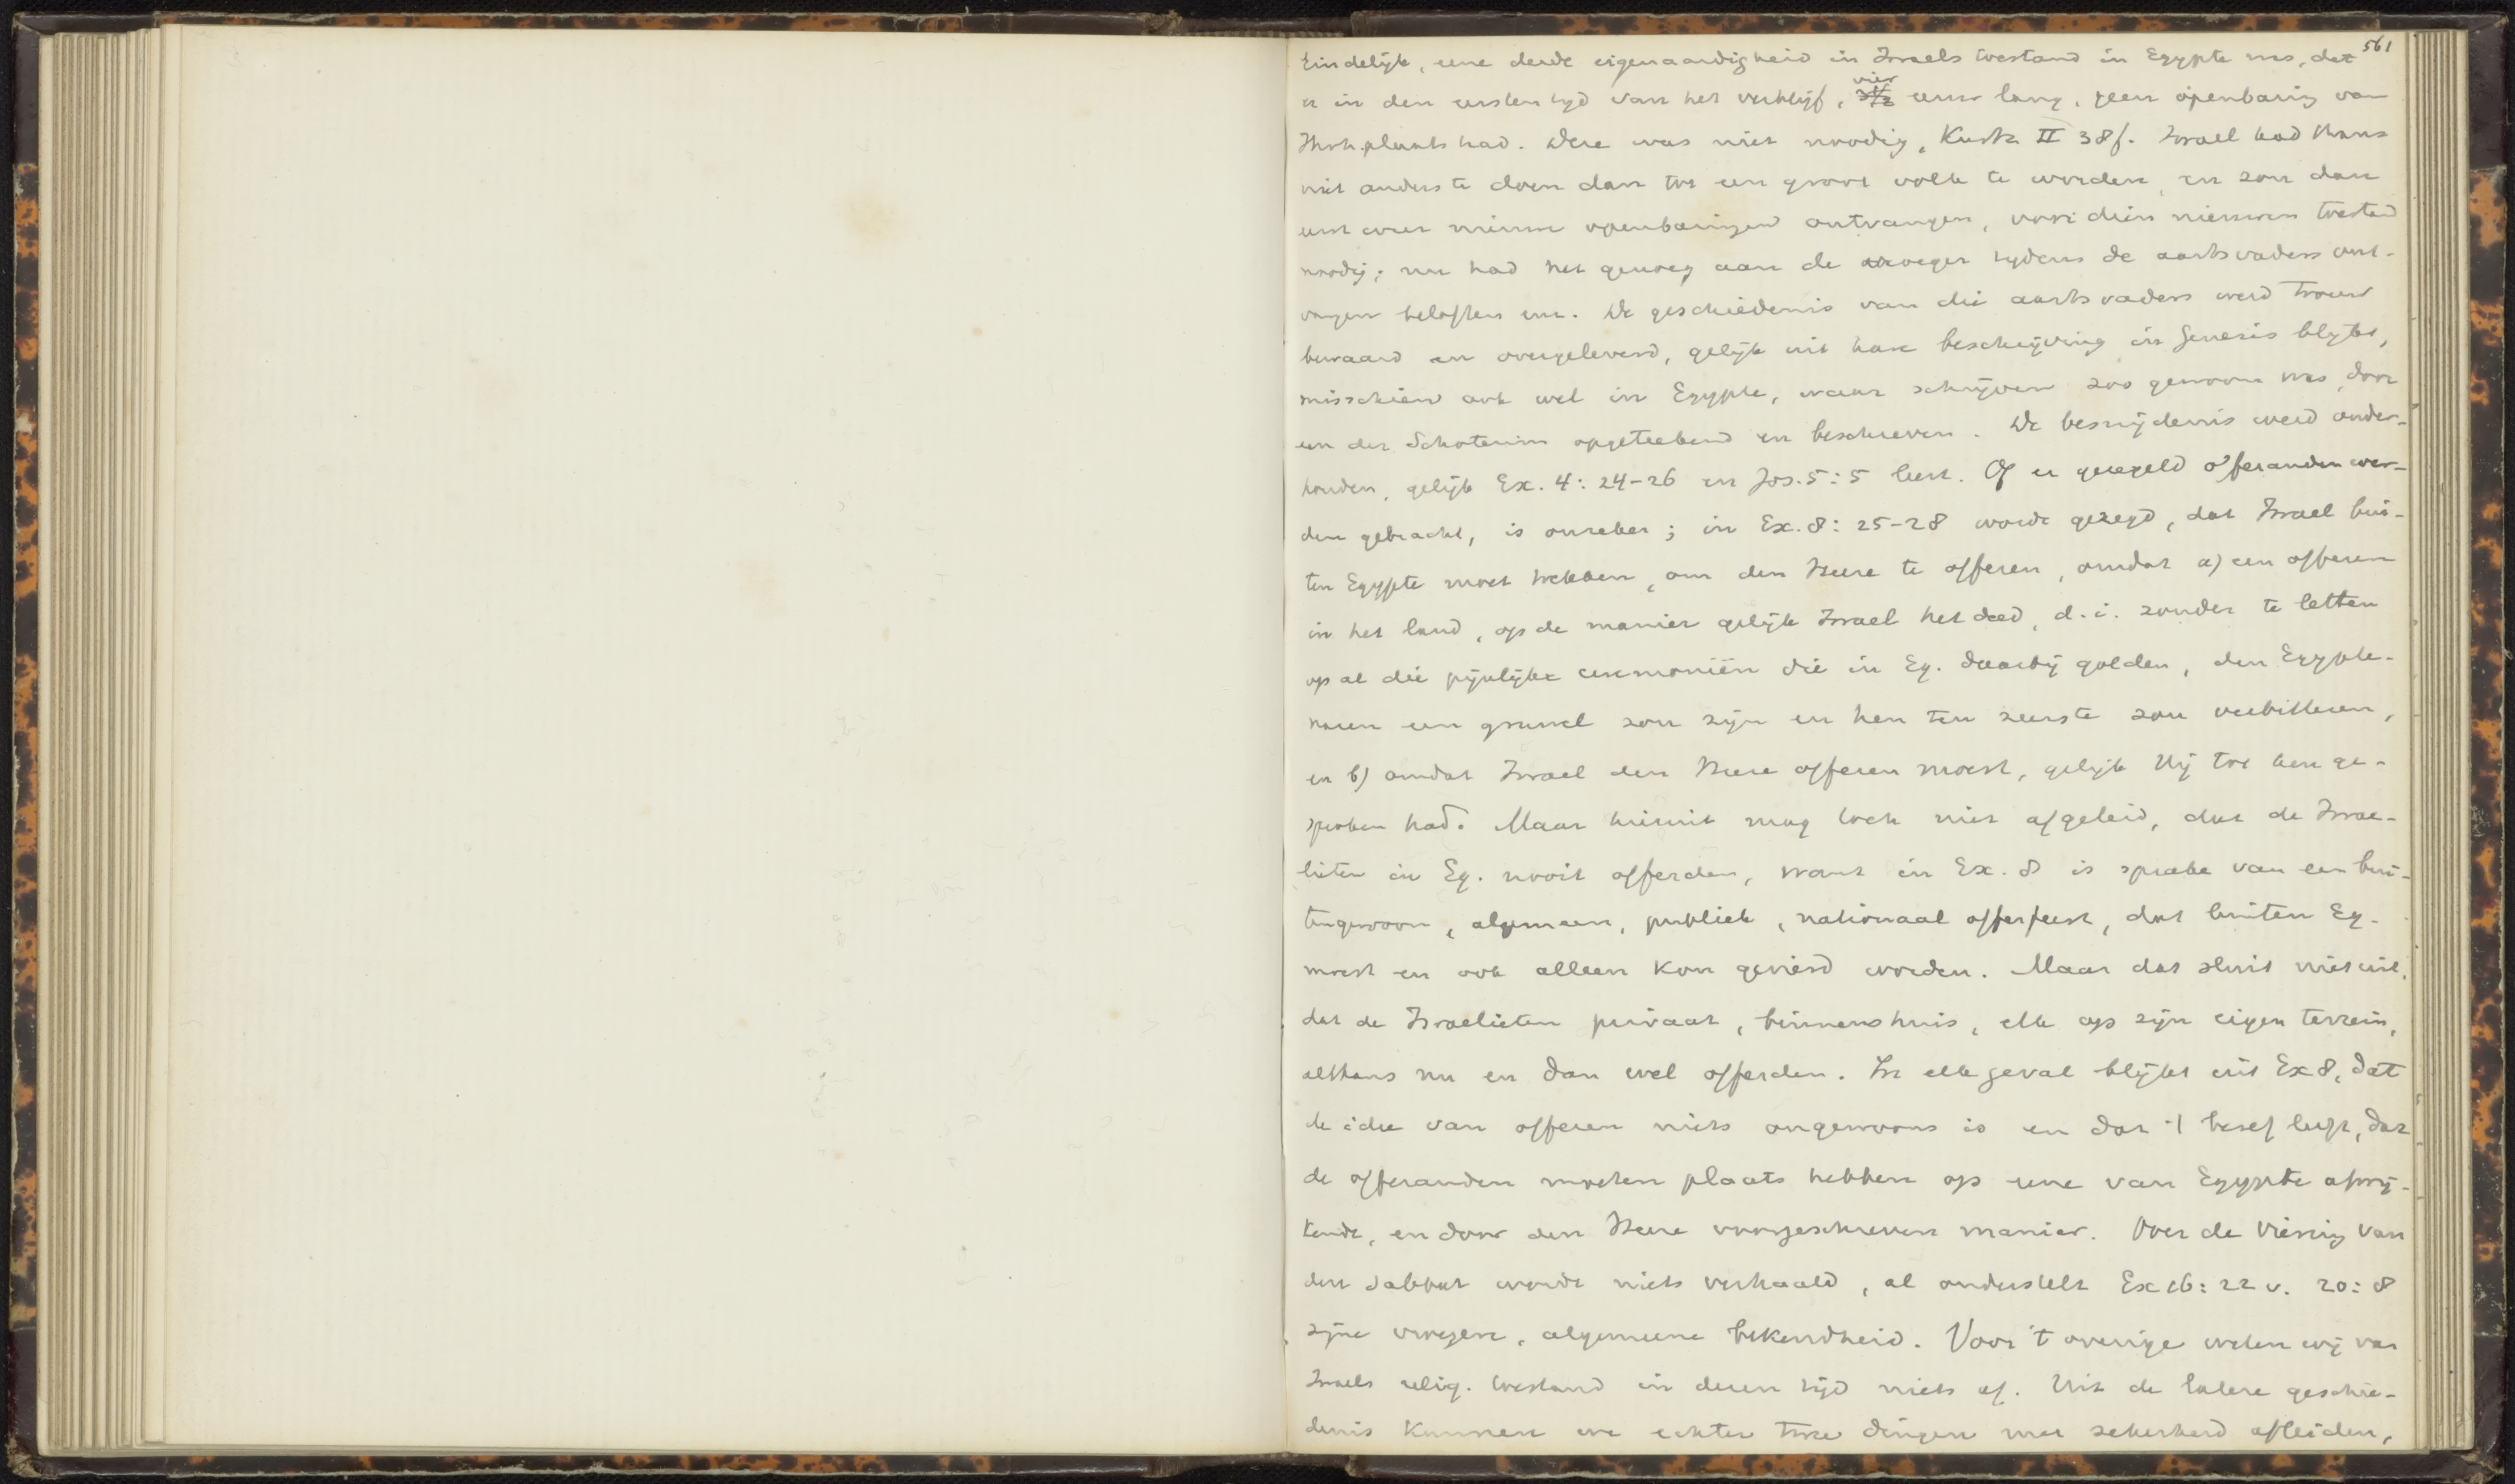 561
Eindelijk, eene derde eigenaardigheid in Israels toestand in Egypte was, dat
er in den eersten tijd van het verblijf, vier eeuw lang, geen openbaring van
Jhvh plaats had. Deze was niet noodig, Kurtz II 38f. Israel had thans
niet anders te doen dan tot een groot volk te worden, en zou dan
eerst weer nieuwe openbaringen ontvangen, voor dien nieuwen toestand
noodig; nu had het genoeg aan de vroeger tydens de aartsvaders ont-
vangen beloften enz. De geschiedenis van die aartsvaders werd trouw
bewaard en overgeleverd, gelijk uit hare beschrijving in Genesis blijkt,
misschien ook wel in Egypte, waar schrijven zoo gewoon was, door
een der Schoterim opgeteekend en beschreven. De besnijdenis werd onder-
houden, gelijk Ex. 4: 24-26 en Jos. 5: 5 leert. Of er geregeld offeranden wer-
den gebracht, is onzeker; in Ex. 8: 25-28 wordt gezegd, dat Israel bui-
ten Egypte moet trekken, om den Heere te offeren, omdat a) een offeren
in het land, op de manier gelijk Israel het deed, d.i. zonder te letten
op al die pijnlijke ceremoniën die in Eg. daarbij golden, den Egypte-
naren een gruwel zou zijn en hen ten zeerste zou verbitteren,
en b) omdat Israel den Heere offeren moest, gelijk Hij tot hen ge-
sproken had. Maar hieruit mag toch niet afgeleid, dat de Israe-
lieten in Eg. nooit offerden, want in Ex. 8 is sprake van een bui-
tengewoon, algemeen, publiek, nationaal offerfeest, dat buiten Eg.
moest en ook alleen kon gevierd worden. Maar dat sluit niet uit,
dat de Israelieten privaat, binnenshuis, elk op zijn eigen terrein,
althans nu en dan wel offerden. In elk geval blijkt uit Ex 8, dat
de idee van offeren niets ongewoons is en dat 't besef leeft, dat
de offeranden moeten plaats hebben op eene van Egypte afwij-
kende, en door den Heere voorgeschreven manier. Over de viering van
den sabbat wordt niets verhaald, al onderstelt Ex 16: 22 v. 20: 8
zijne vroegere, algemeene bekendheid. Voor 't overige weten wij van
Israels relig. toestand in dezen tijd niets af. Uit de latere geschie-
denis kunnen we echter twee dingen met zekerheid afleiden,